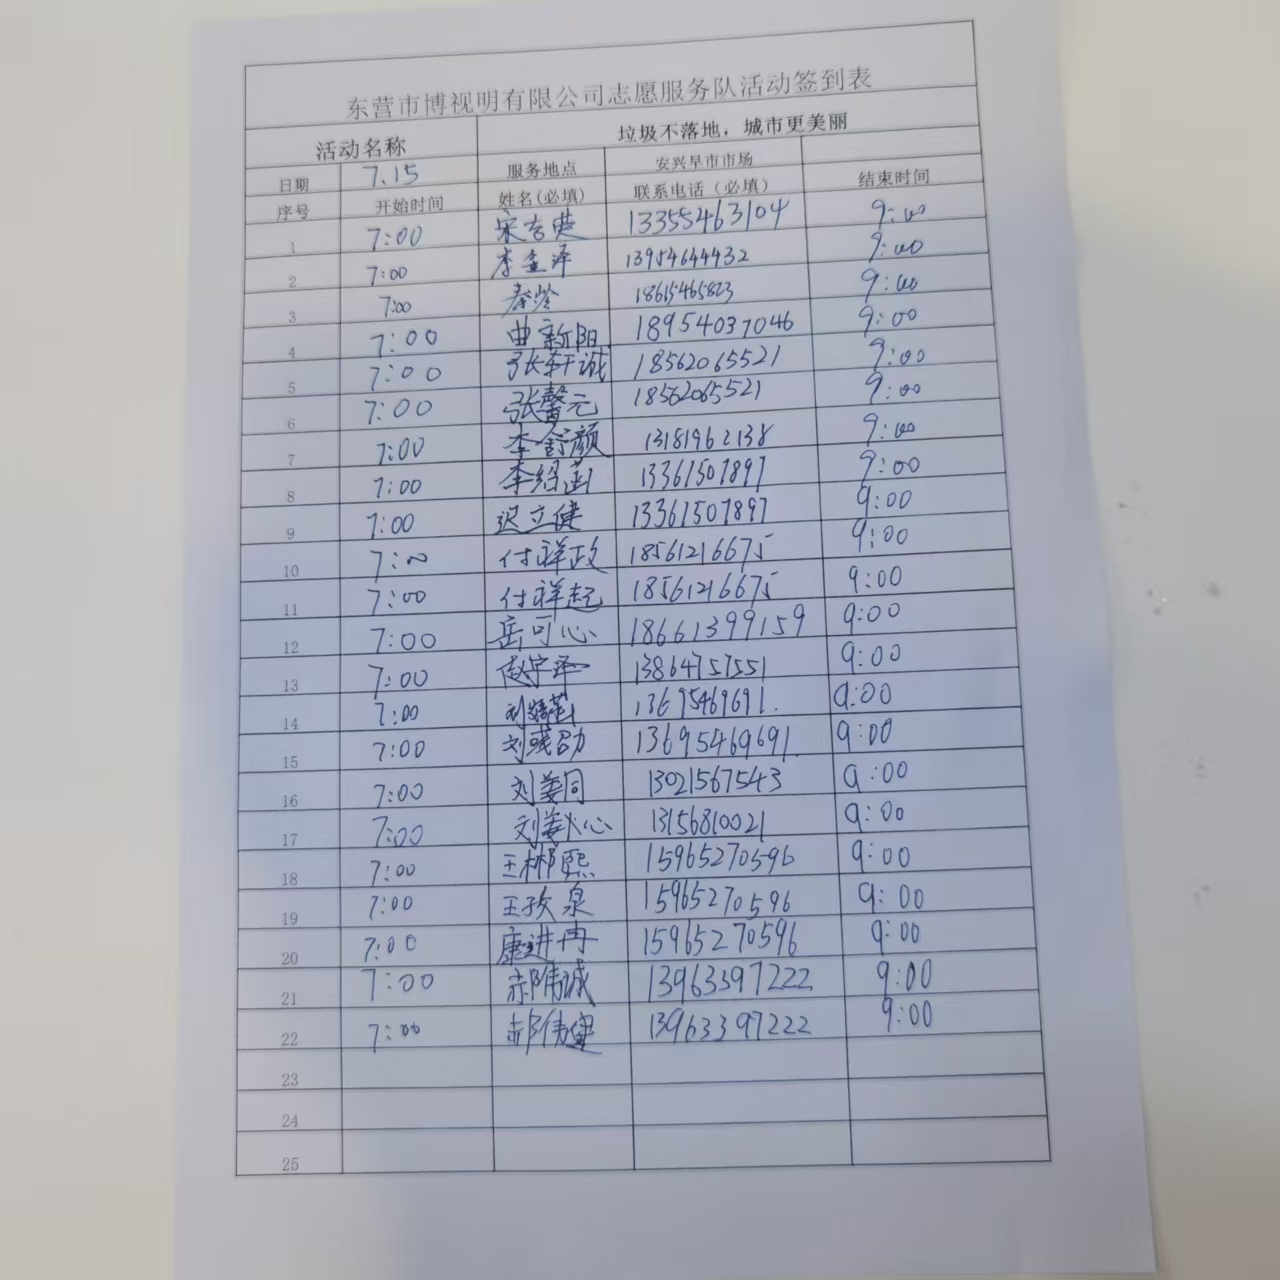 东营市博视明有限公司志愿服务队活动签到表
活动名称 垃圾不落地，城市更美丽
日期 7.15 服务地点 安兴早市市场
序号 开始时间 姓名(必填) 联系电话（必填） 结束时间
1 7:00 宋吉 13355463104 9:00
2 7:00 李孟泽 13954644432 9:00
3 7:00 秦 18615465823 9:00
4 7:00 曲新阳 18954037046 9:00
5 7:00 张轩诚 18562065521 9:00
6 7:00 张馨元 18562065521 9:00
7 7:00 李舒颜 13181962138 9:00
8 7:00 李绍菡 13361507897 9:00
9 7:00 迟立健 13361507897 9:00
10 7:00 付祥政 18561216675 9:00
11 7:00 付祥起 18561216675 9:00
12 7:00 岳可心 18661399159 9:00
13 7:00 赵宇泽 13864757551 9:00
14 7:00 刘菡 13695469691. 9:00
15 7:00 刘彧劭 13695469691. 9:00
16 7:00 刘姜同 13021567543 9:00
17 7:00 刘姜心 13156810021 9:00
18 7:00 王郴熙 15965270596 9:00
19 7:00 王玫泉 15965270596 9:00
20 7:00 康进冉 15965270596 9:00
21 7:00 郝伟诚 13963397222 9:00
22 7:00 郝伟健 13963397222 9:00
23
24
25